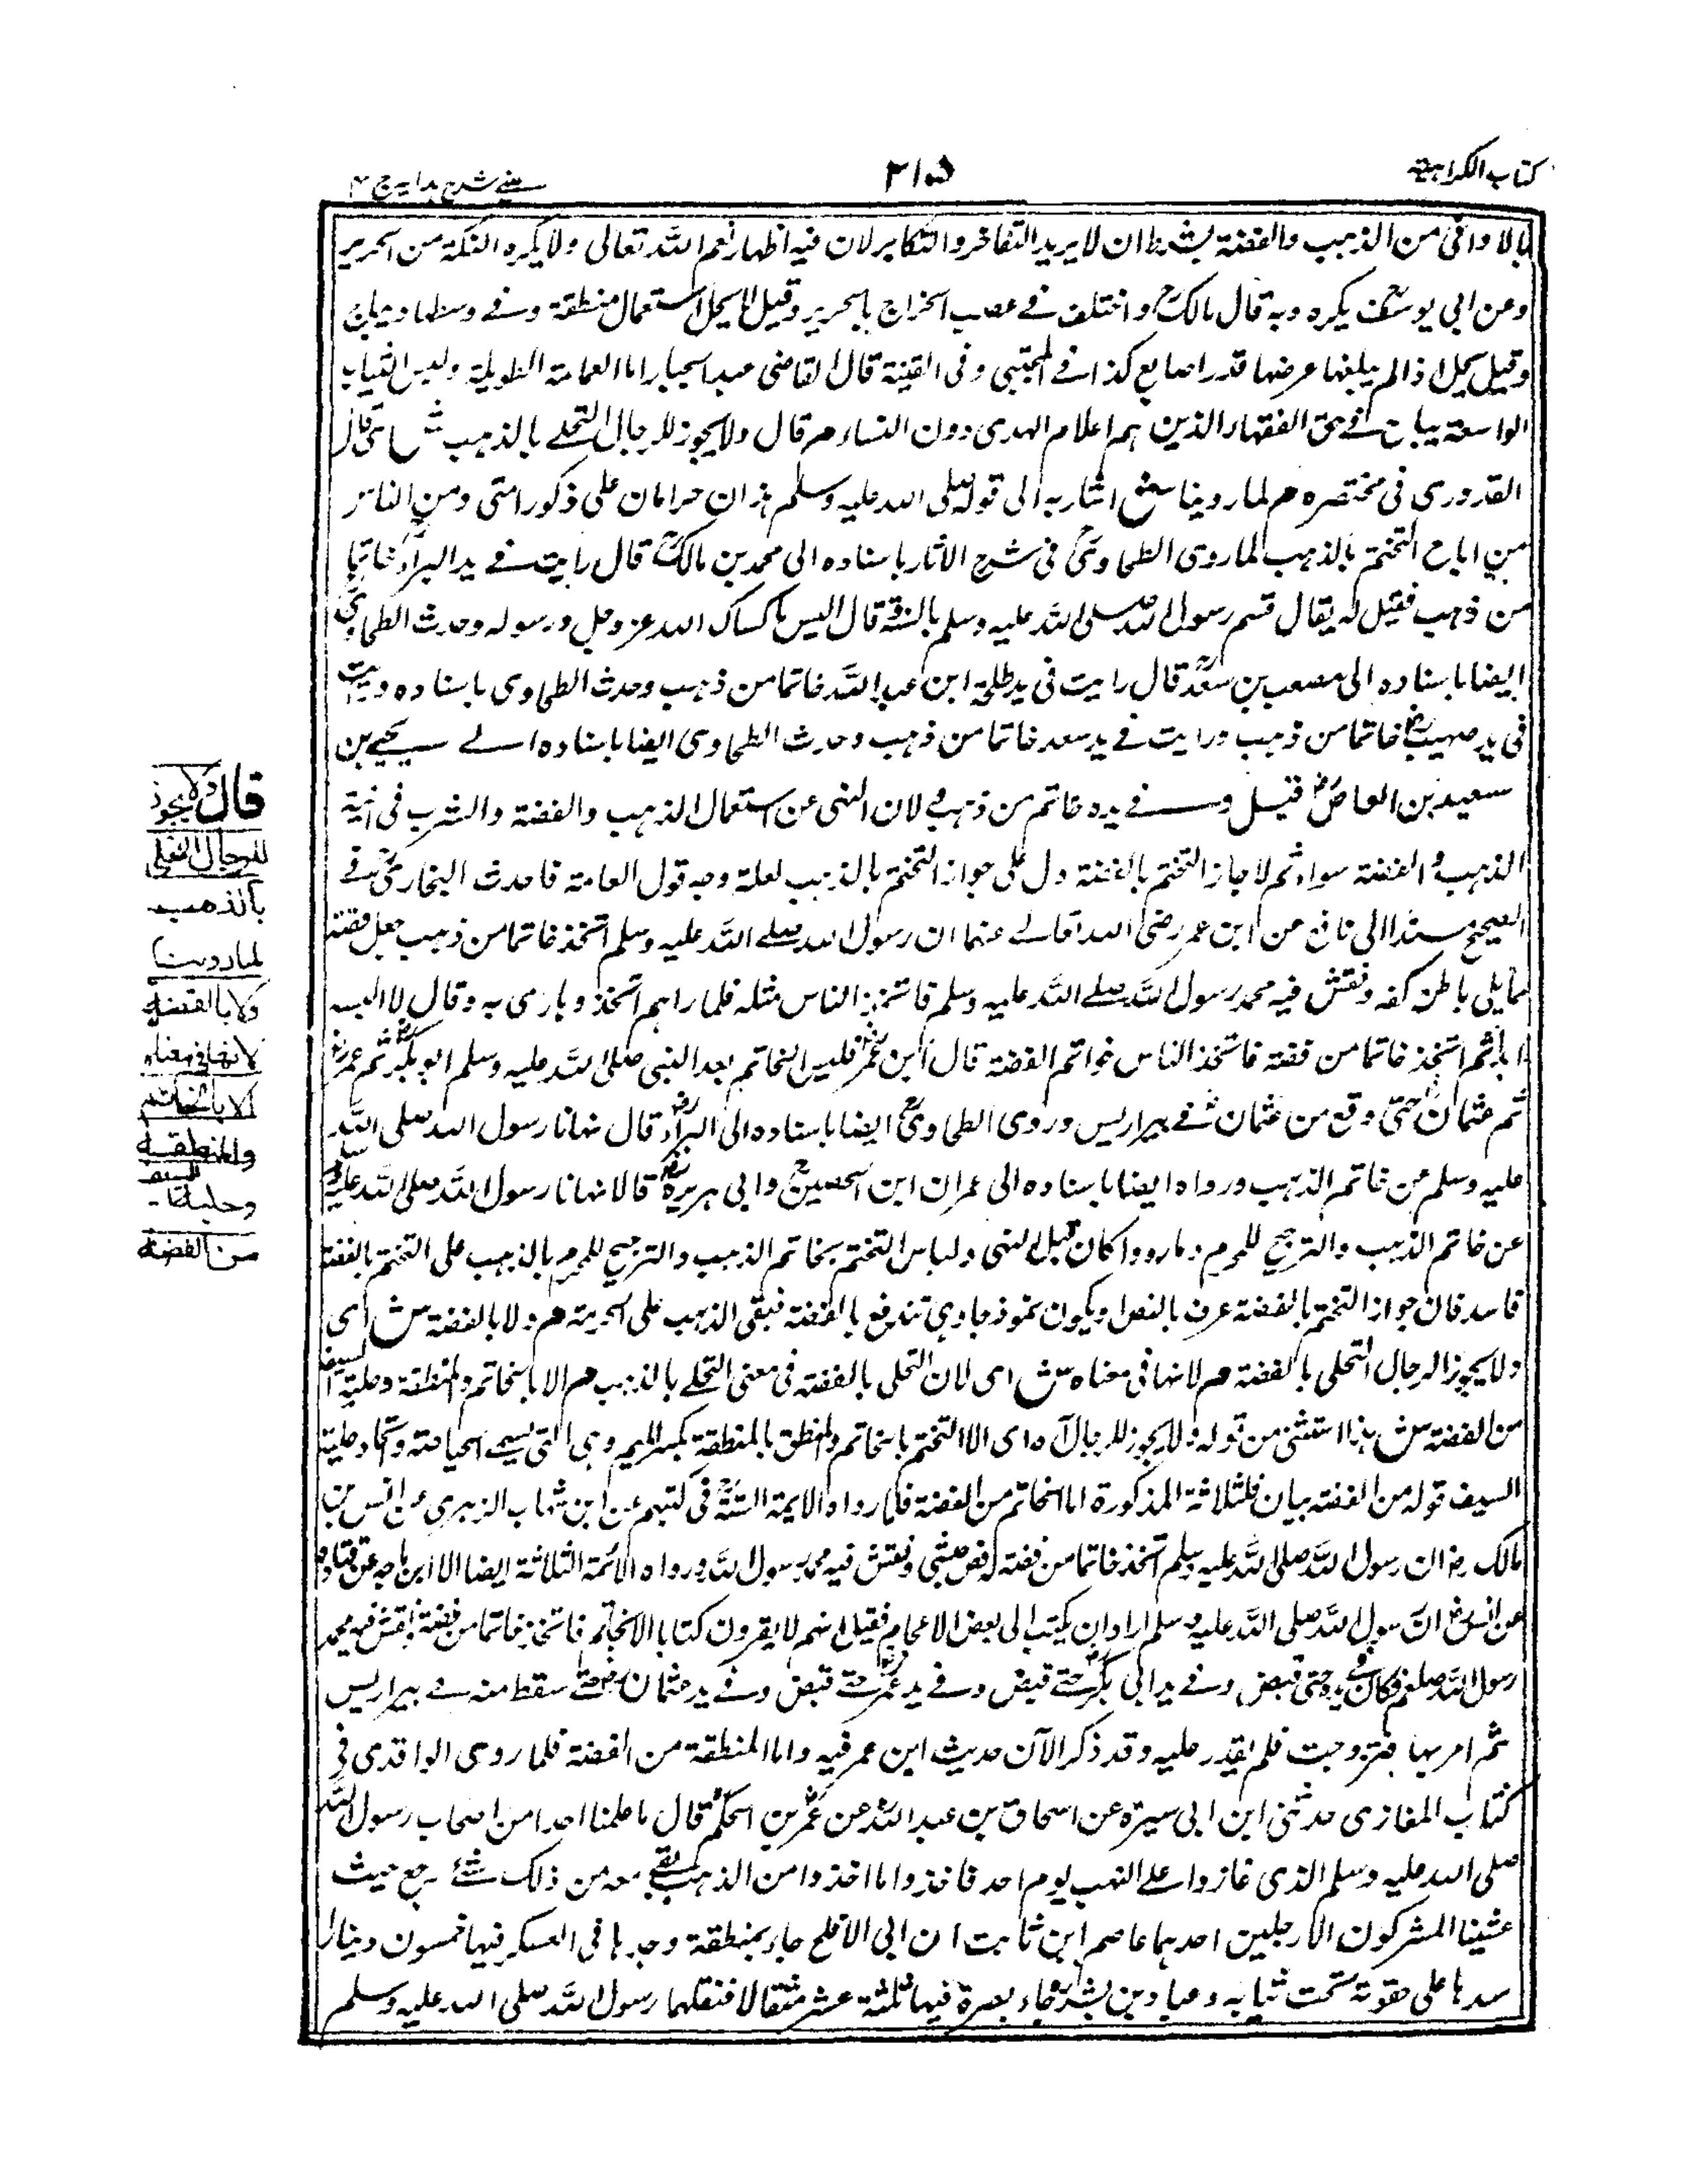 كتاب الكراهية
٢١٥
عينى شرح هدايه ج ٤
بالاوانى من الذهب والفضة بشرط ان لا يريد التفاخر والتكاثر لان فيه اظهار نعم الله تعالى ولا يكره التكة من الحرير
وعن ابى يوسف يكره وبه قال مالك واختلف فى عصب الخراج بالحرير وقيل لا يحل استعمال منطقة وفى وسطها ديباج
وقيل يحل اذا لم يبلغها عرضها قدر اصابع كذا فى المجتبى وفى القنية قال القاضى عبد الجبار اما العمامة الطويلة ولبس الثياب
الواسعة يباح فى حق الفقهاء الذين هم اعلام الهدى دون النساء م قال ولا يجوز للرجال التحلى بالذهب ش اى قال
القدورى فى مختصره م لما روينا ش اشار به الى قوله صلى الله عليه وسلم هذان حرامان على ذكور امتى ومن الناس
من اباح التختم بالذهب لما روى الطحاوى فى شرح الاثار باسناده الى محمد بن مالك قال رايت فى يد البراء خاتما
من ذهب فقيل له يقال قسم رسول الله صلى الله عليه وسلم قال البس ما كساك الله عز وجل ورسوله وحدث الطحاوى
ايضا باسناده الى مصعب بن سعد قال رايت فى يد طلحة ابن عبد الله خاتما من ذهب وحدث الطحاوى باسناده ورايت
فى يد صهيب خاتما من ذهب ورايت فى يد سعد خاتما من ذهب وحدث الطحاوى ايضا باسناده الى يحيى بن
سعيد بن العاص قتيل وفى يده خاتم من ذهب ولان النهى عن استعمال الذهب والفضة والشرب فى آنية
الذهب والفضة سواء ثم لا جاز التختم بالفضة دل على جواز التختم بالذهب لعلة وجه قول العامة فاحدث البخارى فى
الصحيح مسندا الى نافع عن ابن عمر رضى الله تعالى عنهما ان رسول الله صلى الله عليه وسلم اتخذ خاتما من ذهب جعل فصه
مما يلى باطن كفه ونقش فيه محمد رسول الله صلى الله عليه وسلم فاتخذ الناس مثله فلما راهم اتخذوها رمى به وقال لا البسه
ابدا ثم اتخذ خاتما من فضة فاتخذ الناس خواتم الفضة قال ابن عمر فلبس الخاتم بعد النبى صلى الله عليه وسلم ابو بكر ثم عمر
ثم عثمان حتى وقع من عثمان فى بير اريس وروى الطحاوى ايضا باسناده الى البراء قال نهانا رسول الله صلى الله
عليه وسلم عن خاتم الذهب ورواه ايضا باسناده الى عمران ابن الحصين وابى هريرة قالا نهانا رسول الله صلى الله عليه وسلم
عن خاتم الذهب والترجيح للمحرم وما رووا كان قبل النهى ولباس التختم بخاتم الذهب والترجيح للمحرم بالذهب على التختم بالفضة
فاسد فان جواز التختم بالفضة عرف بالنص ويكون نموذجا وهى تندفع بالفضة فبقى الذهب على الحرمة م ولا بالفضة ش اى
ولا يجوز الرجال التحلى بالفضة م لانها فى معناه ش اى لان التحلى بالفضة فى معنى التحلى بالذهب م الا بالخاتم والمنطقة وحلية السيف
من الفضة ش هذا استثنى من قوله ولا يجوز للرجال آه اى الا التختم بالخاتم والمنطق بالمنطقة بكسر الميم وهى التى تسمى الحياصة حلية
السيف قوله من الفضة بيان فلثلاثة المذكورة اما الخاتم من الفضة فلما رواه الايمة الستة فى كتبهم عن ابن شهاب الزهرى عن انس بن
مالك ان رسول الله صلى الله عليه وسلم اتخذ خاتما من فضة له فص حبشى ونقش فيه محمد رسول الله ورواه الائمة الثلاثة ايضا الا ابن ماجه عن قتادة
عن انس ان رسول الله صلى الله عليه وسلم اراد ان يكتب الى بعض الاعاجم فقيل انهم لا يقرون كتابا الا بخاتم فاتخذ خاتما من فضة نقش فيه محمد
رسول الله صلعم فكان فى يده حتى قبض وفى يد ابى بكر حتى قبض وفى يد عمر حتى قبض وفى يد عثمان حتى سقط منه فى بير اريس
ثم امر بها فنزحت فلم يقدر عليه وقد ذكر الآن حديث ابن عمر فيه واما المنطقة من الفضة فلما روى الواقدى فى
كتاب المغازى حدثنى ابن ابى سبرة عن اسحاق بن عبد الله عن عمر بن الحكم قال ما علمنا احدا من اصحاب رسول الله
صلى الله عليه وسلم الذى غازوا على النهب يوم احد فاخذوا ما اخذوا من الذهب بقى معه من ذلك شئ رجع حيث
غشينا المشركون الا رجلين احدهما عاصم ابن ثابت ان ابى الافلح جاء بمنطقة وجدها فى العسكر فيها خمسون دينارا
سدها على حقوته تحت ثيابه وعباد بن بشر جاء بصرة فيها ثلثة عشر مثقالا فنفلهما رسول الله صلى الله عليه وسلم
قال ولا يجوز
للرجال التحلى
بالذهب
لما روينا
ولا بالفضة
لانها فى معناه
الا بالخاتم
والمنطقة
وحلية السيف
من الفضة